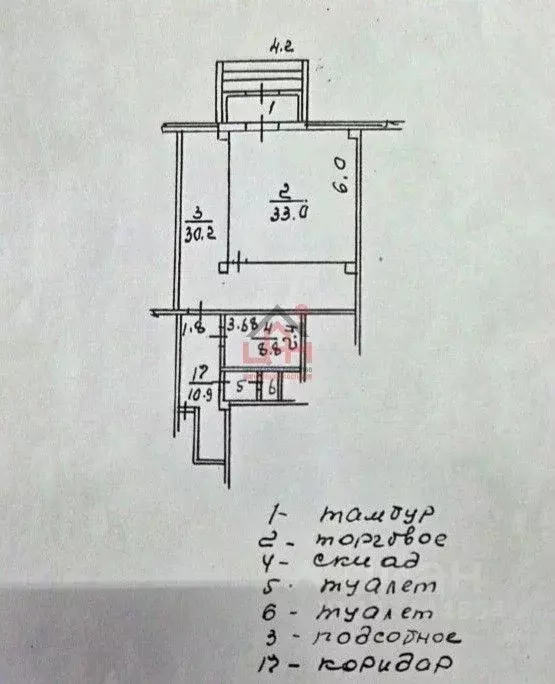 4.2
1
6.0
2
33.0
3
30.2
1.8
3.68
4
8.8
17
10.9
5
6
1- тамбур
2- торговое
4- склад
5- туалет
6- туалет
3- подсобное
17- коридар